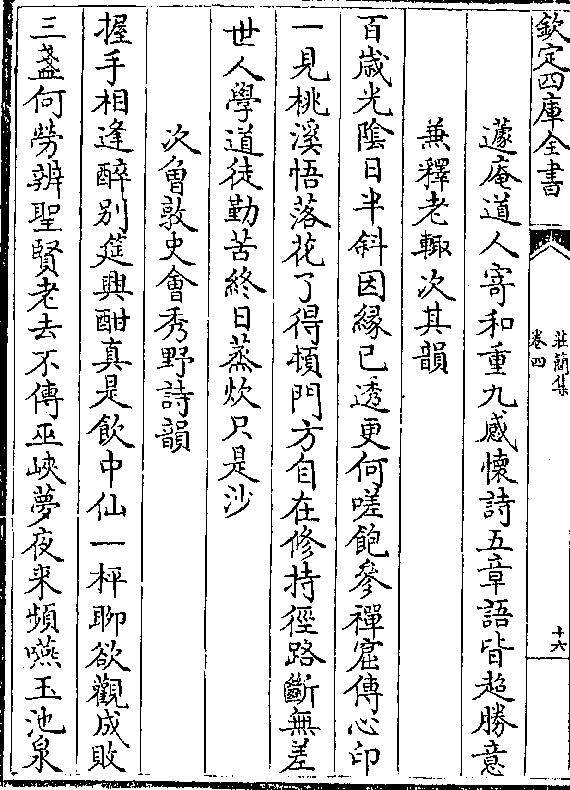 欽定四庫全書
莊簡集
卷四
十六
蘧庵道人寄和重九感懷詩五章語皆超勝意
兼釋老輙次其韻
百歲光陰日半斜因緣已透更何嗟飽參禪窟傳心印
一見桃溪悟落花了得頓門方自在修持徑路斷無差
世人學道徒勤苦終日蒸炊只是沙
次魯敦史會秀野詩韻
握手相逢醉别筵興酣真是飲中仙一枰聊欲觀成敗
三盞何勞辨聖賢老去不傳巫峽夢夜来頻嚥玉池泉